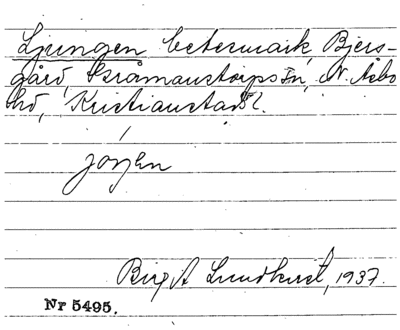 Ljungen betesmark, Bjers-
gård, Gråmanstorps sn, N. Åsbo
hd, Kristianstads l.
jóŋen
Birgit Lundkvist, 1937.
Nr 5495.